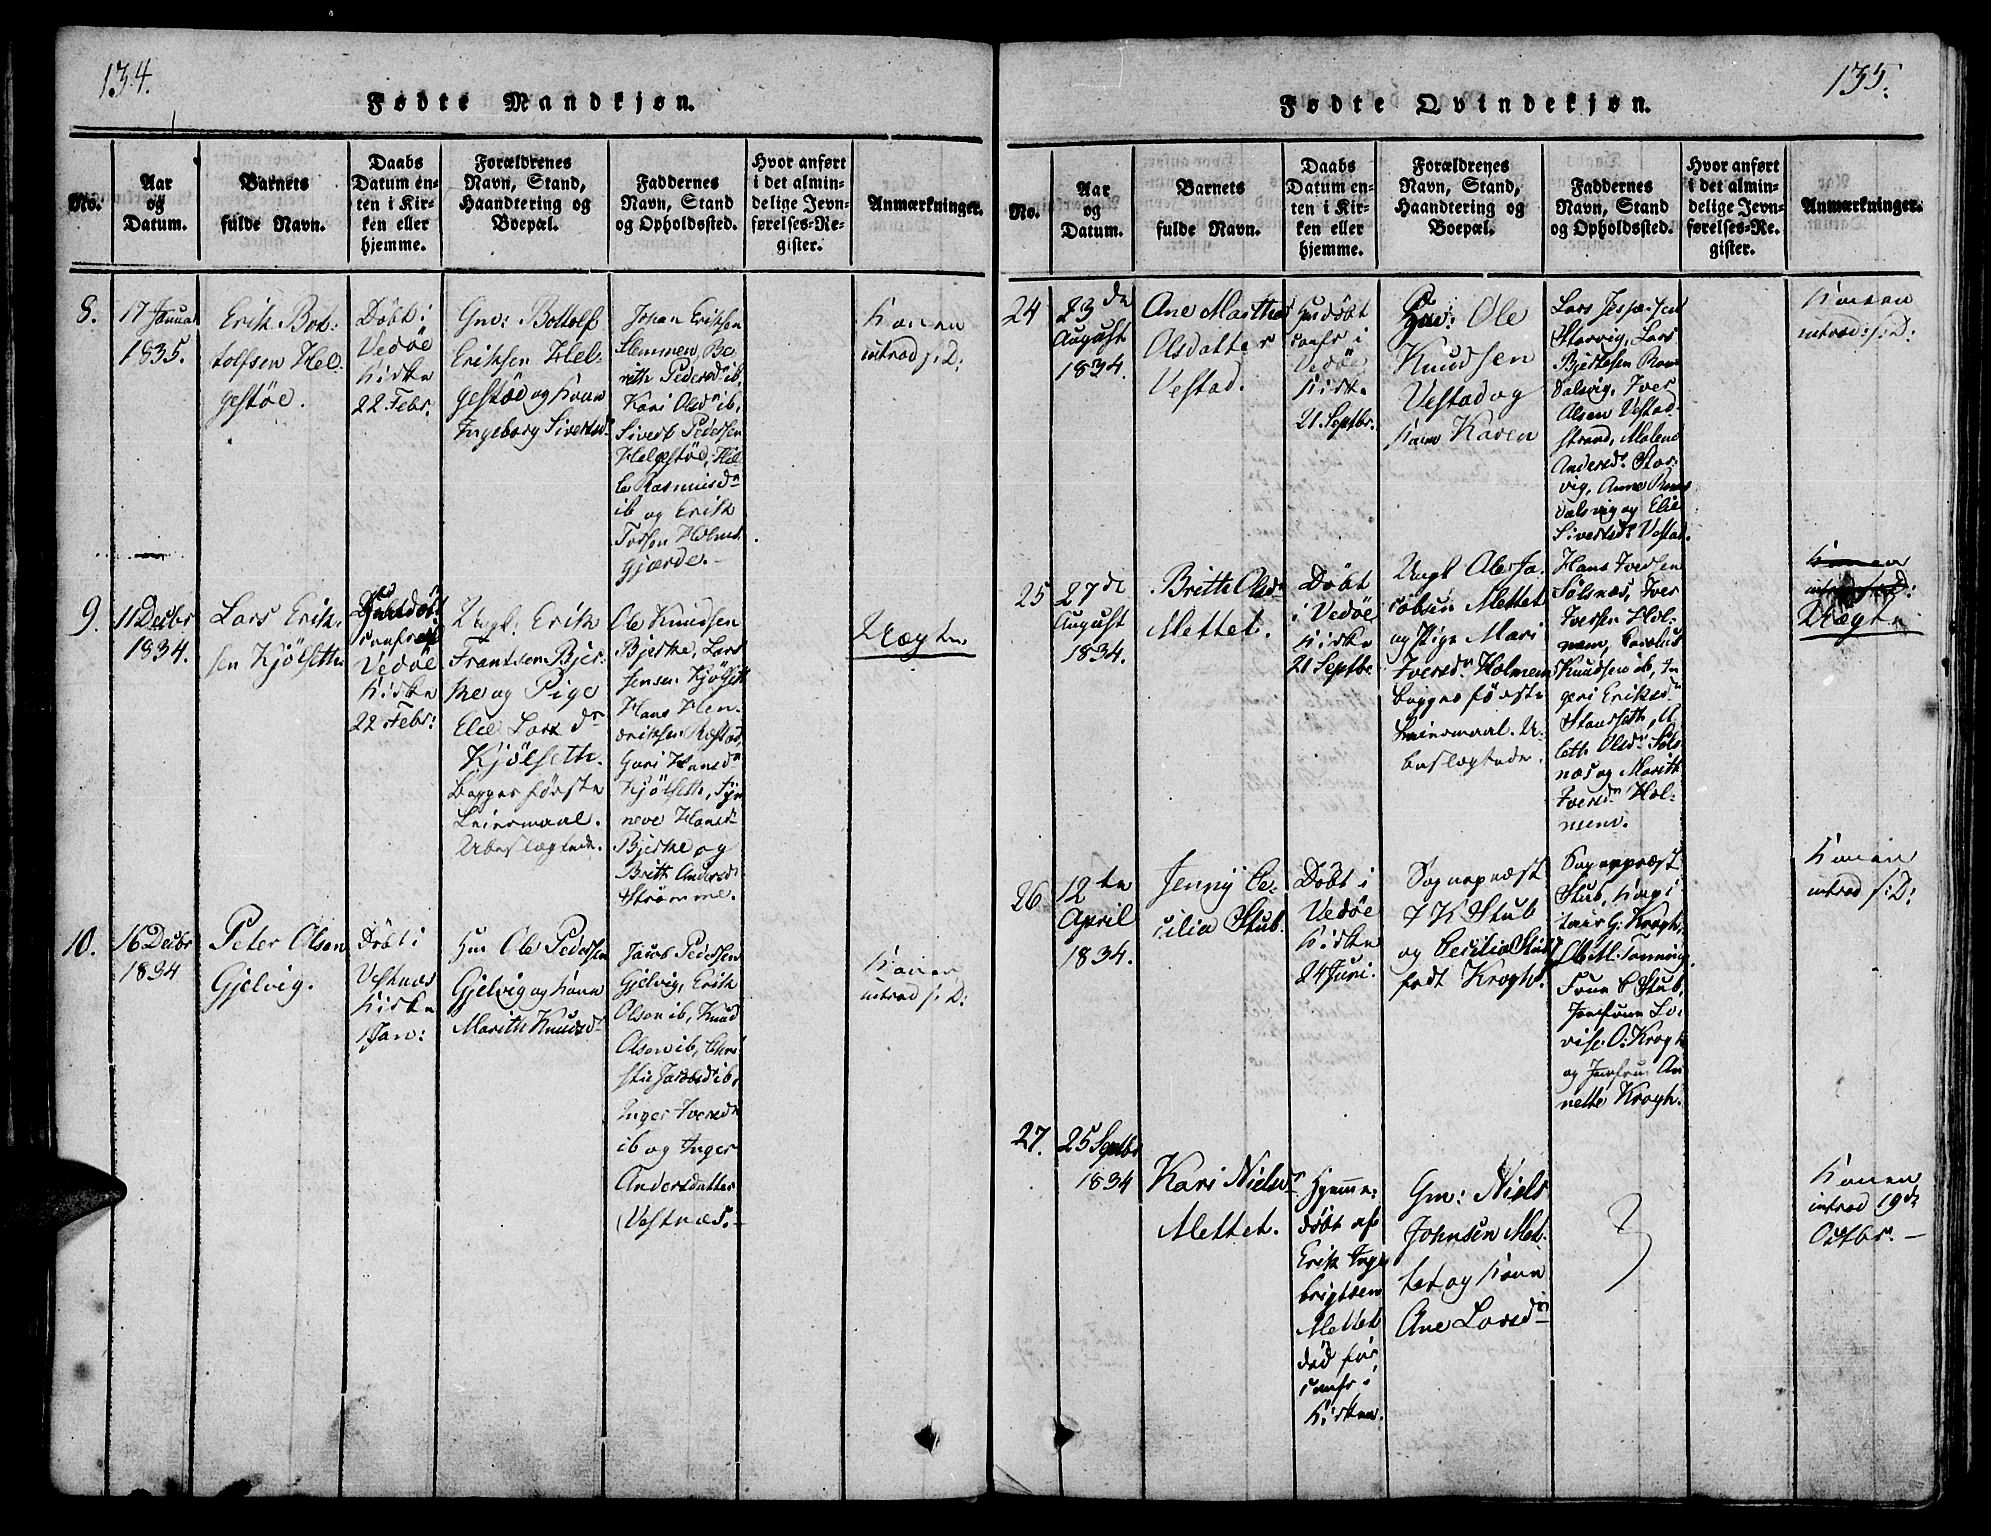 134.
Fødte Mandkjøn.
No.
Aar
og
Datum.
Barnets
fulde Navn.
Daabs
Datum en-
ten i Kir-
ken eller
hjemme.
Forældrenes
Navn, Stand,
Haandtering og
Boepæl.
Faddernes
Navn, Stand
og Opholdssted.
Hvor anført
i det almin-
delige Jevn-
førelses-Re-
gister.
Anmærkninger.
8.
17 Januar
1835.
Erik Bot:
tolfsen Hel-
gestøe.
Døbt i
Vedøe
Kirke
22 Febr.
Gm: Bottolf
Eriksen Hel-
gestøe og Kone
Ingeborg Sivertsd.
Johan Eriksen
Slemmen, Be
rith Pedersd ib,
Kari Olsdr ib,
Sivert Pedersen
Helgestøe,
Rasmusdr
ib og Erik
Iversen Holms
Gjærde.
Konen
introd s: D:
9.
11 Decbr
1834.
Lars Erik-
sen Kjølseth
confr
Vedøe
Kirke
22 Febr:
Ungk: Erik
Frantsen Bjer-
ke og Pige
Elie Lars dr
Kjølseth.
Begges første
Leiermaal.
Ubeslægtede.
Ole Knudsen
Bjerke, Lars
Jensen Kjølseth
Hans Hen-
driksen Restad,
Guri Hansdr
Kjølseth, Syn
neve Hansdr
Bjerke og
Britt Andersdr
Strømme.
Uægte
10.
16 Decbr
1834
Peter Olsen
Gjelvig.
Døbt i
Vestnæs
Kirke
1 Jan:
Ole Pedersen
Gjelvig og Kone
Marith Knudsdr
Jacob Pedersen
Gjelvig, Erik
Olsen ib, Knud
Olsen ib, Chri
stie Jacobsd ib,
Inger Iversdr
ib og Inger
Andersdatter
Vestnæs.
Konen
introd s: D:
135.
Fødte Qvindekjøn.
No.
Aar
og
Datum.
Barnets
fulde Navn.
Daabs
Datum en-
ten i Kir-
ken eller
hjemme.
Forældrenes
Navn, Stand,
Haandtering og
Boepæl.
Faddernes
Navn, Stand
og Opholdssted.
Hvor anført
i det almin-
delige Jevn-
førelses-Re-
gister.
Anmærkninger.
24
23 de
August
1834.
Ane Marthe
Olsdatter
Vestad.
confr i
Vedøe
Kirke
21 Septbr.
Ole
Knudsen
Vestad og
Kone Karen
Lars Jespersen
Storvig, Lars
Bjerkesen Rom
dalsvig, Iver
Olsen Vestad-
strand, Malene
Andersdr Stor-
vig, Anne Roms
dalsvig og Elie
Sivertsdr Vestad.
Konen
introd: s: D:
25
27 de
August
1834.
Britte Olsdr
Mettet.
Døbt
i Vedøe
Kirke
21 Septbr
Ungk Ole Ja-
cobsen Mettet
og Pige Mari
Iversdr Holmem
begges første
Leiermaal. U-
beslægtede.
Hans Iversen
Sølsnæs, Iver
Iversen Hol-
mem,
Knudsen ib, In
geri Eriksdr
Olsdr Søls
næs og Marith
Iversdr Hol-
mem.
Konen
introd s: D:
Uægte
26
12 te
April
1834.
Jenny Ce-
cilia Stub.
Døbt i
Vedøe
Kirke
24 Juni.
Sognepræst
J K Stub
og Cecilia Stub
født Krogh.
Sognepræst
Stub, Kapi
tain G: Krogh,
Ole M. Tønning,
Frue C Stub,
Jomfrue Lo-
vise O: Krogh
og Jomfrue An
nette Krogh.
Konen
introd s: D:
27.
25 Septbr
1834
Kari Nielsdr
Mettet.
Hjemme-
døbt af
Erik Inge
brigtsen
Mettet
død før
confr i
Kirken.
Gm: Niels
Johnsen Met-
tet og Kone
Ane Larsdr
Konen
introd 19 de
Octbr.